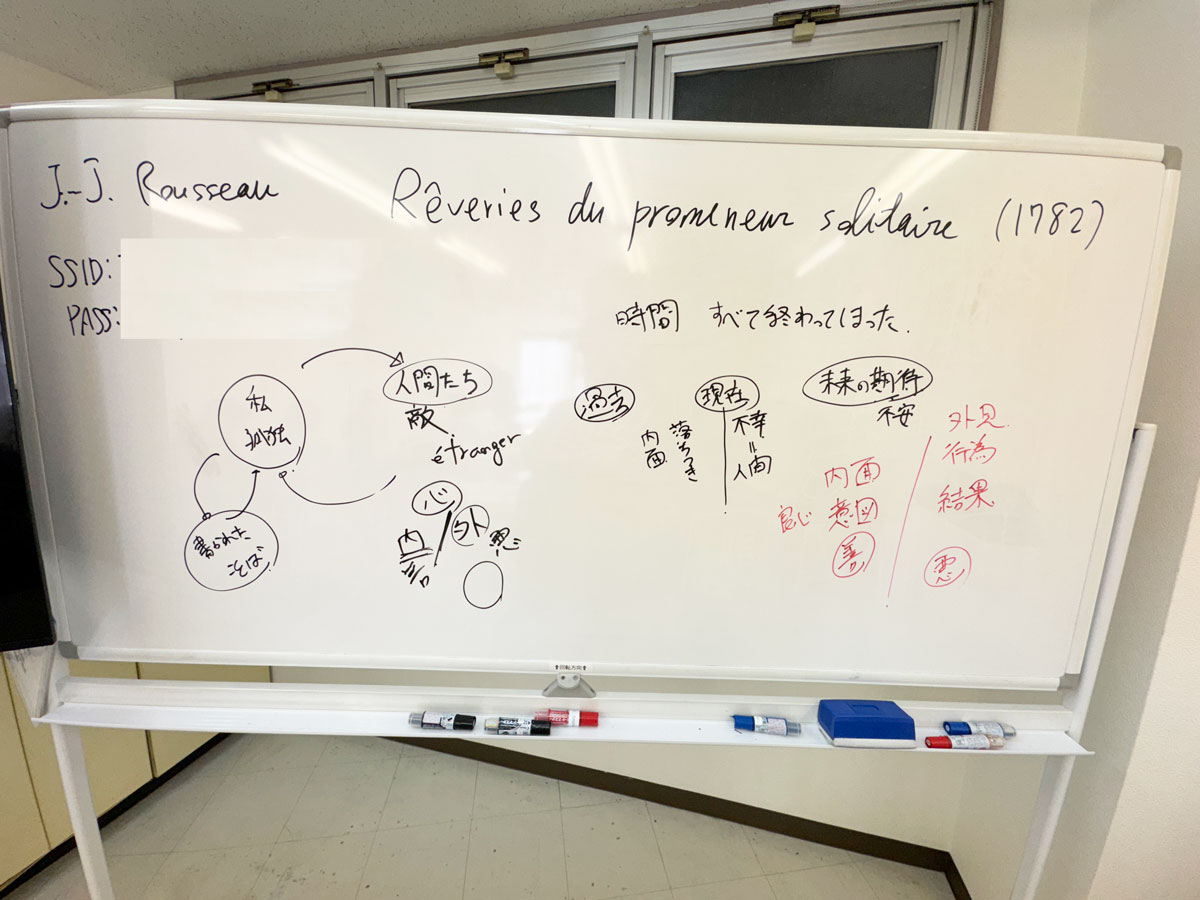 J.-J. Rousseau
Rêveries du promeneur solitaire (1782)
SSID:
PASS:
時間 すべて終わってしまった.
私
孤独
人間たち
敵
étranger
書かれた
ことば
心
内
善
外
悪
過去
現在
内面
落ちつき
不幸
=
人間
未来の期待
不安
外見
行為
結果
悪
内面
良心 意図
善
↑回転方向↑